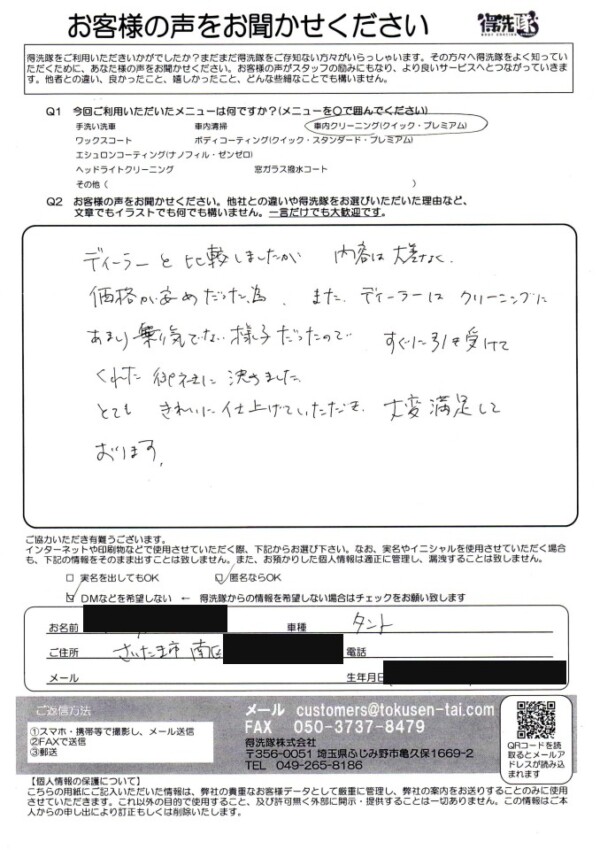 お客様の声をお聞かせください
得洗隊
得洗隊をご利用いただきいかがでしたか？まだまだ得洗隊をご存知ない方々がいらっしゃいます。その方々へ得洗隊をよく知ってい
ただくために、あなた様の声をお聞かせください。お客様の声がスタッフの励みにもなり、より良いサービスへとつながっていきま
す。他者との違い、良かったこと、嬉しかったこと、どんな些細なことでも構いません。
Q1 今回ご利用いただいたメニューは何ですか？(メニューを○で囲んでください)
手洗い洗車 車内清掃 車内クリーニング(クイック・プレミアム)
ワックスコート ボディコーティング(クイック・スタンダード・プレミアム)
エシュロンコーティング(ナノフィル・ゼンゼロ)
ヘッドライトクリーニング 窓ガラス撥水コート
その他（ ）
Q2 お客様の声をお聞かせください。他社との違いや得洗隊をお選びいただいた理由など、
文章でもイラストでも何でも構いません。一言だけでも大歓迎です。
ディーラーと比較しましたが 内容は大差なく、
価格が安めだった為、また、ディーラーはクリーニングに
あまり乗気でない様子だったので すぐに引き受けて
くれた御社に決めました。
とても きれいに仕上げていただき、大変満足して
おります。
ご協力いただき有難うございます。
インターネットや印刷物などで使用させていただく際、下記からお選び下さい。なお、実名やイニシャルを使用させていただく場合
も、下記の情報をそのまま出すことは致しません。また、お預かりした個人情報は適正に管理し、漏洩することは致しません。
□ 実名を出してもOK ☑ 匿名ならOK
☑ DMなどを希望しない ← 得洗隊からの情報を希望しない場合はチェックをお願い致します
お名前 車種 タント
ご住所 さいたま市 南区 電話
メール 生年月日
ご返信方法
①スマホ・携帯等で撮影し、メール送信
②FAXで送信
③郵送
メール customers@tokusen-tai.com
FAX 050-3737-8479
得洗隊株式会社
〒356-0051 埼玉県ふじみ野市亀久保1669-2
TEL 049-265-8186
QRコードを読
取るとメールア
ドレスが読み込
まれます
【個人情報の保護について】
こちらの用紙にご記入いただいた情報は、弊社の貴重なお客様データとして厳重に管理し、弊社の案内をお送りすることのみに使用
させていただきます。これ以外の目的で使用すること、及び許可無く外部に開示・提供することは一切ありません。この情報はご本
人からの申し出により訂正もしくは削除いたします。